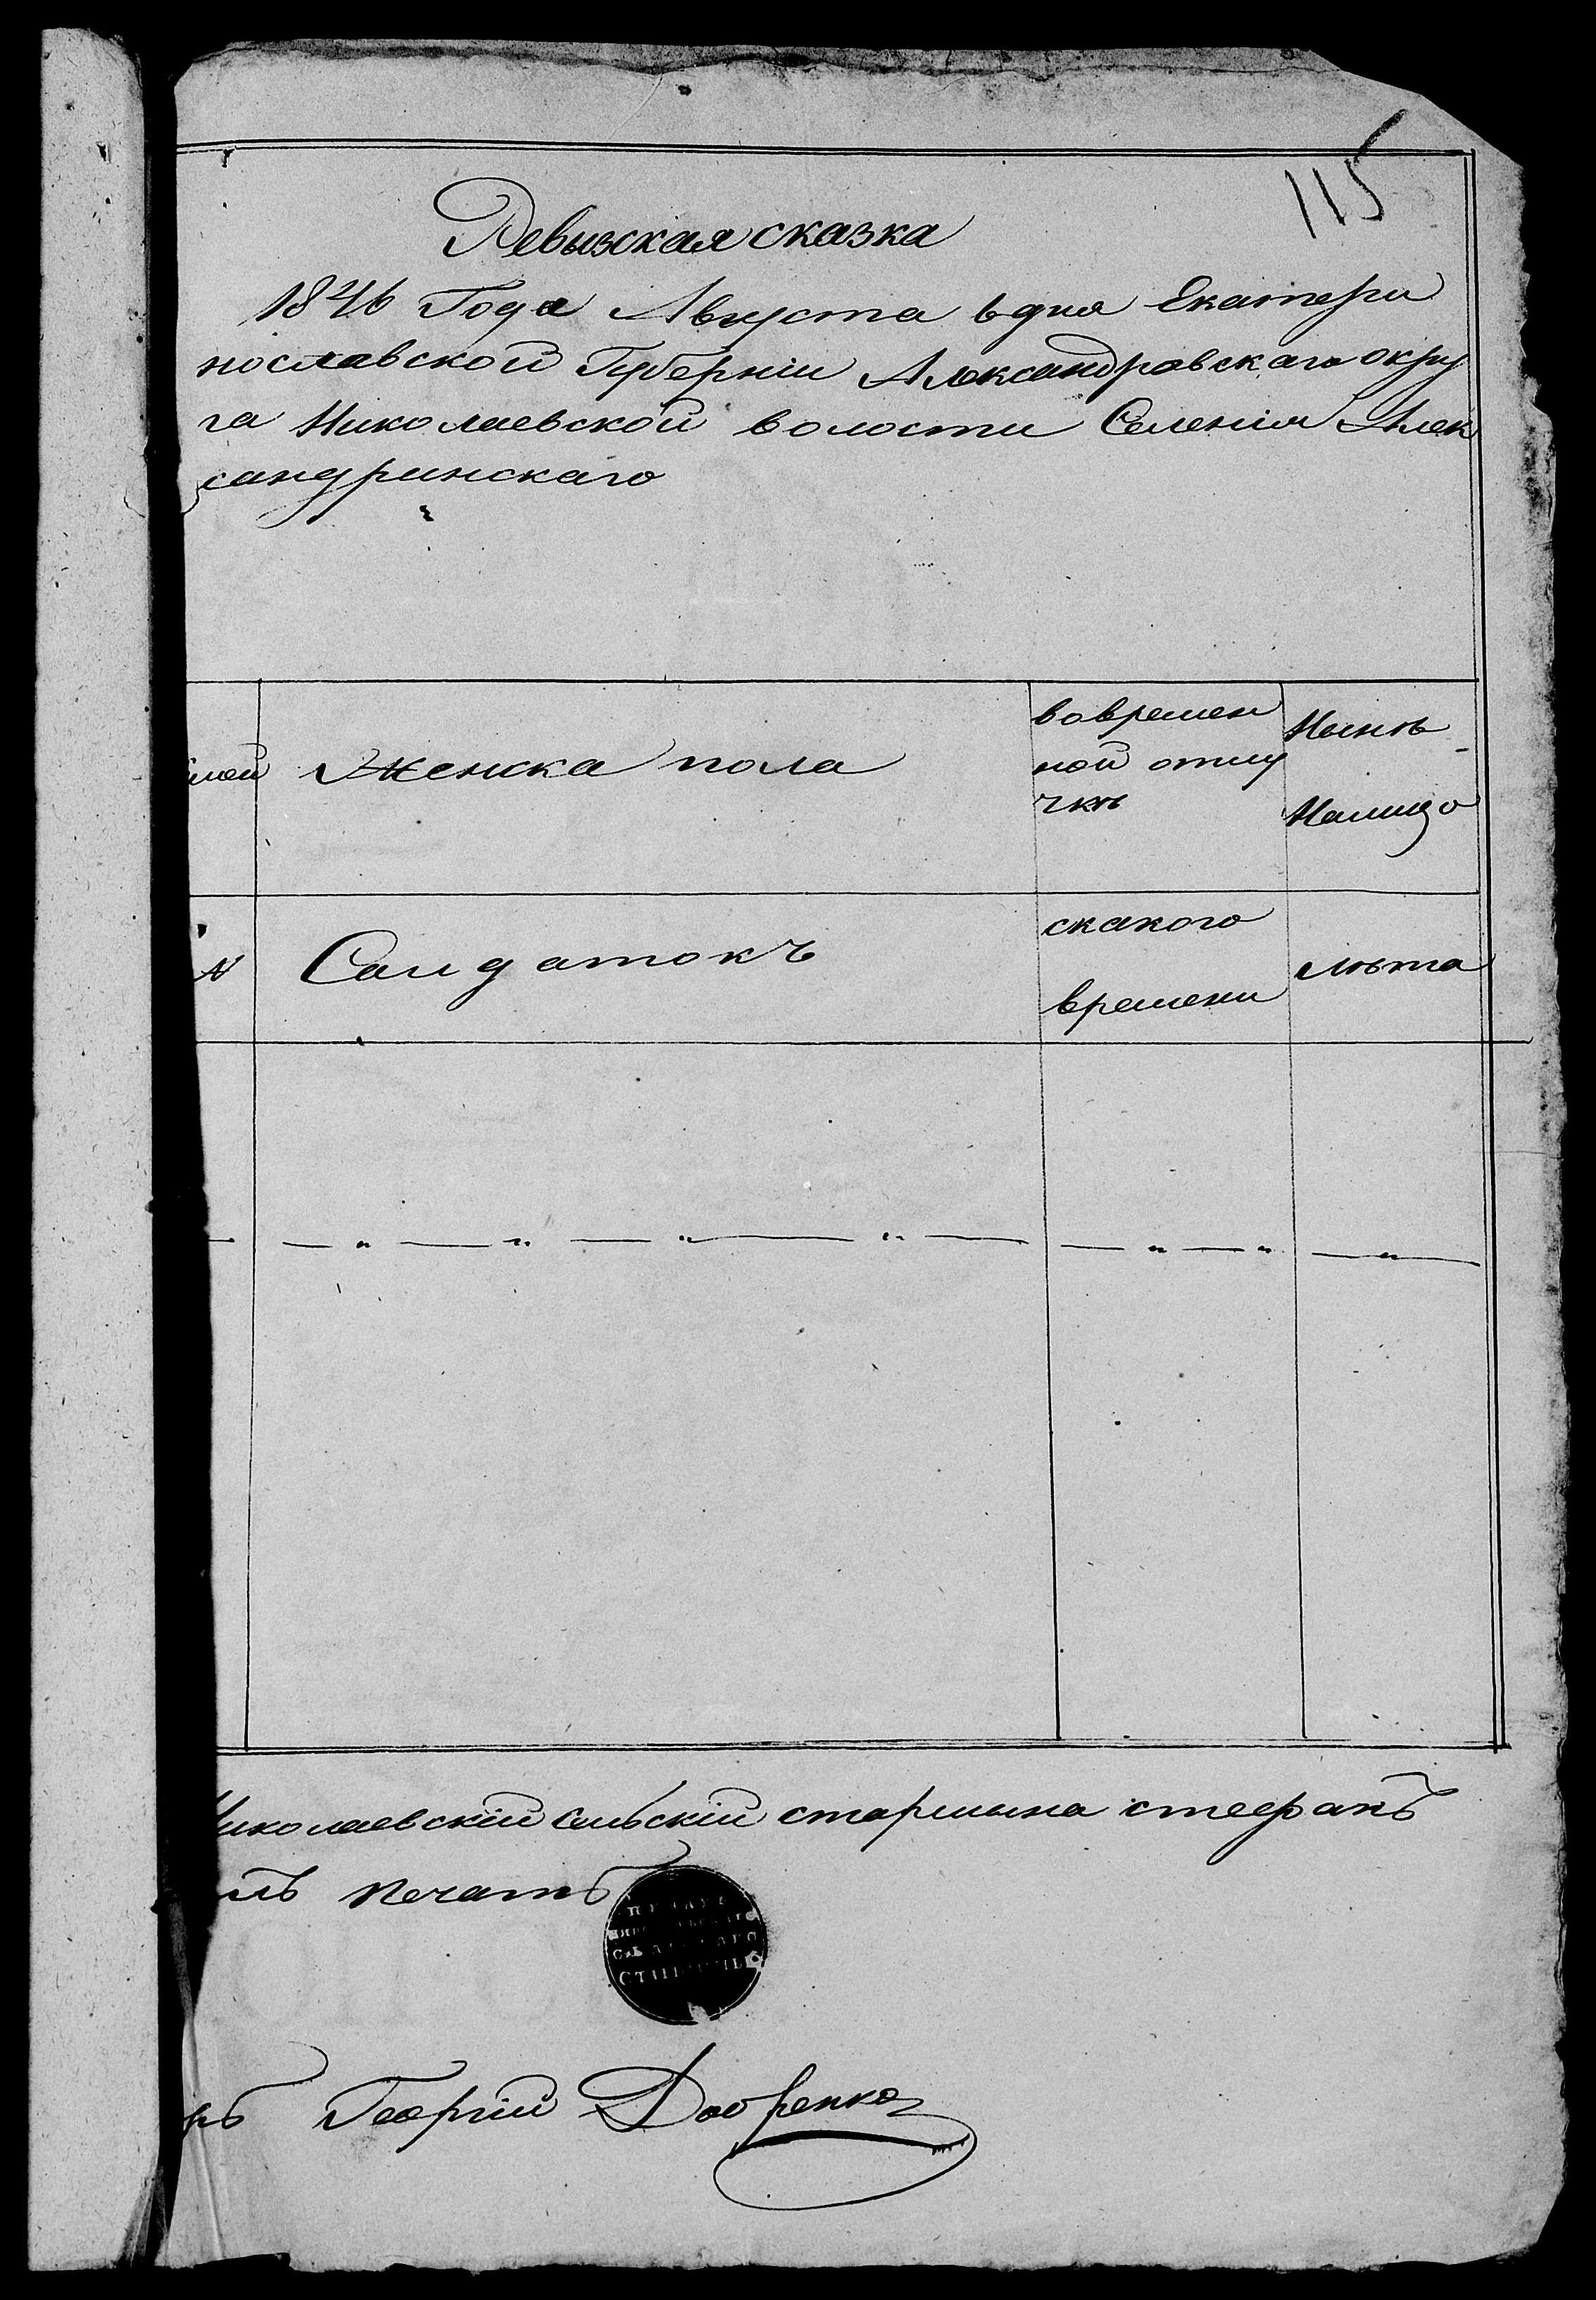 115
Ревызская сказка
1846 Года Августа 6 дня Екатери
нославской Губерніи Александровскаго окру
га Николаевской волости Селенія Алек
сандринскаго
мой
Женска пола
вовремен
ной отлу
чкѣ
Нынѣ
Налицо
N
Салдатокъ
скакого
времени
лѣта
Николаевскій сельскій старшына стефанъ
илъ печать
СТАРШИНЫ
рь Георгій Добренко